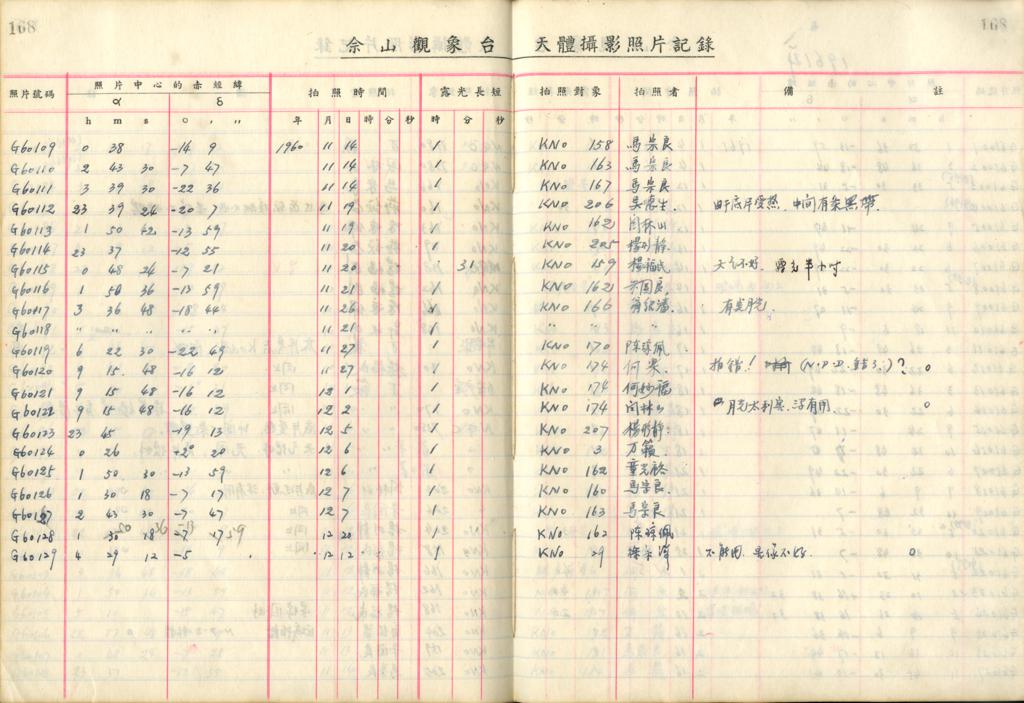 168 168
佘山觀象台 天體攝影照片記錄
照片號碼 照片中心的赤經緯 拍照時間 露光長短 拍照對象 拍照者 備 註
α δ
h m s ○ , ,, 年 月 日 時 分 秒 時 分 秒
G60109 0 38 -14 9 1960 11 14 1 KNO 158 馬宗良
G60110 2 43 30 -7 47 11 14 1 KNO 163 馬宗良
G60111 3 39 30 -22 36 11 14 1 KNO 167 馬宗良
G60112 23 39 24 -20 7 11 19 1 KNO 206 中间有条黑带
G60113 1 50 42 -13 59 11 19 1 KNO 162 闵林山
G60114 23 37 -12 55 11 20 1 KNO 205
G60115 0 48 24 -7 21 11 20 31 KNO 159 楊福民 天气不好. 露光半小时
G60116 1 50 36 -13 59 11 21 1 KNO 162
G60117 3 36 48 -18 44 11 26 KNO 166 有美月光
G60118 " " " " " 11 21 1 " "
G60119 6 22 30 -22 49 11 27 1 KNO 170
G60120 9 15 48 -16 12 11 27 1 KNO 174 何 拍錯! ? o
G60121 9 15 48 -16 12 12 1 1 KNO 174 何妙福
G60122 9 15 48 -16 12 12 2 1 KNO 174 闵林山 月光太利害. 沒有用 o
G60123 23 45 -19 13 12 5 1 KNO 207
G60124 0 26 20 12 6 1 KNO 3 万籁.
G60125 1 50 30 -13 59 12 6 1 KNO 162
G60126 1 30 18 -7 17 12 7 1 KNO 160 馬宗良.
G60127 2 43 30 -7 47 12 7 1 KNO 163 馬宗良
G60128 1 50 36 -13 59 12 20 1 KNO 162
G60129 4 29 12 -5 12 12 1 KNO 29 不能用. 星像不好. o